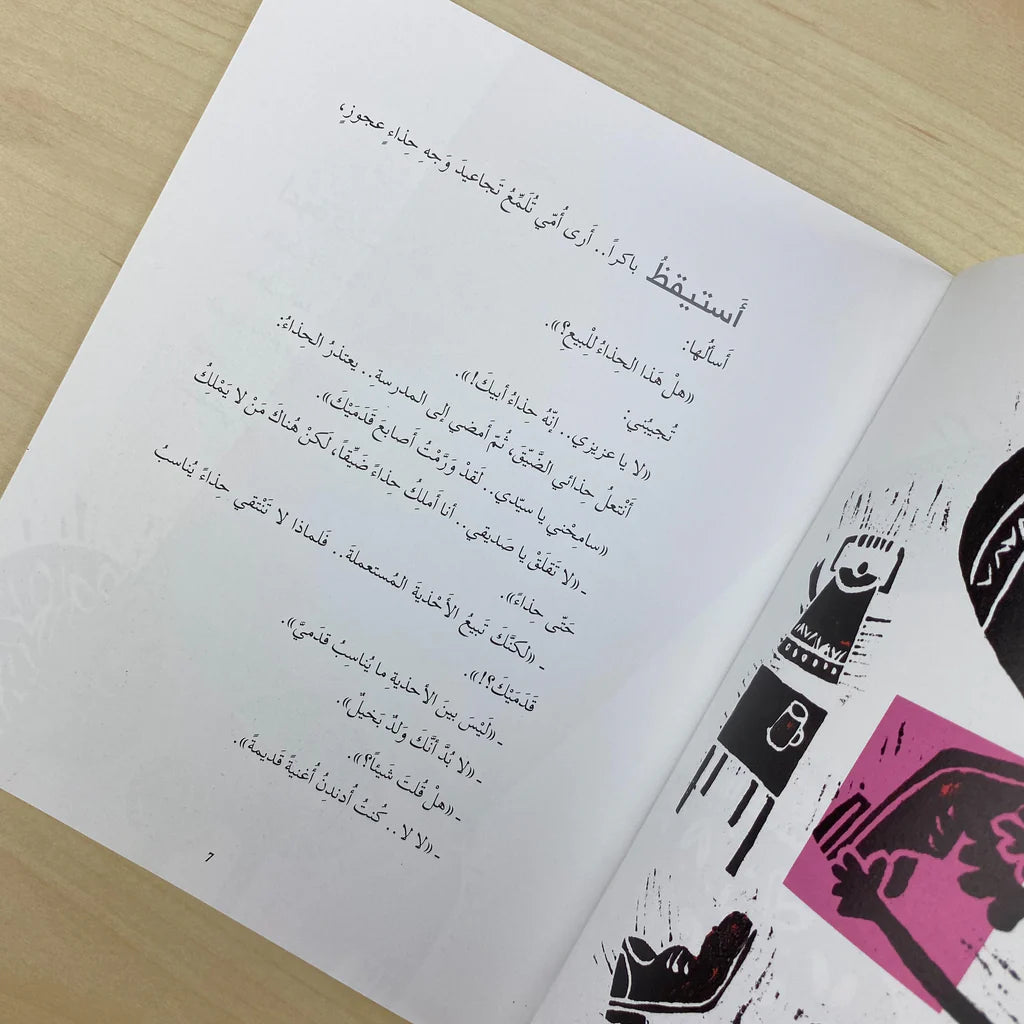 أَستيقظُ باكراً.. أَرى أُمّي تُلَمِّعُ تَجاعيدَ وَجهِ حِذاءٍ عجوزٍ،
أَسأَلُها:
((هلْ هَذا الحِذاءُ لِلْبيعِ؟)).
تُجيبُني:
((لا يا عزيزي.. إنّهُ حِذاءُ أبيكَ!)).
أَنْتعلُ حذائي الضَّيّقَ، ثُمّ أَمضي إلى المدرسةِ.. يعتذرُ الحِذاءُ:
((سامِحْني يا سيّدي.. لَقدْ وَرَّمْتُ أَصابعَ قَدَمَيْكَ)).
- ((لا تَقلَقْ يا صَديقي.. أنا أملِكُ حِذاءً ضَيِّقاً، لَكنْ هُناكَ مَنْ لا يَمْلِكُ
حَتّى حِذاءً)).
- ((لكنَّكَ تَبيعُ الأَحْذيةَ المُستعملةَ.. فَلماذا لا تَنْتقي حِذاءً يُناسبُ
قَدَمَيْكَ؟!)).
- ((لَيْسَ بينَ الأحذيةِ ما يُناسِبُ قدَميَّ)).
- ((لا بُدَّ أنَّكَ وَلدٌ بَخيلٌ)).
- ((هلْ قُلتَ شَيئاً؟)).
- ((لا لا.. كُنتُ أُدندِنُ أُغنيةً قَديمةً)).
٧